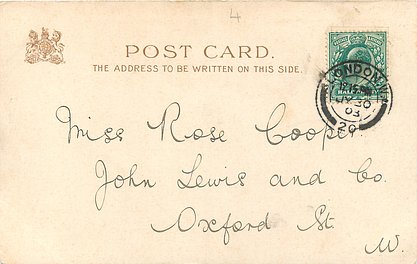 4
POST CARD.
THE ADDRESS TO BE WRITTEN ON THIS SIDE.
LONDON
30
03
20
Miss Rose Cooper.
John Lewis and Co.
Oxford St.
W.